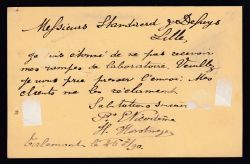 Messieurs Standaerd & Depuys
Lille.
Je suis étonné de ne pas recevoir
mes pompes de laboratoire. Veuillez
je vous prie presser l'envoi. Mes
clients me les réclament.
Salutations
Tirlemont le 26 90.